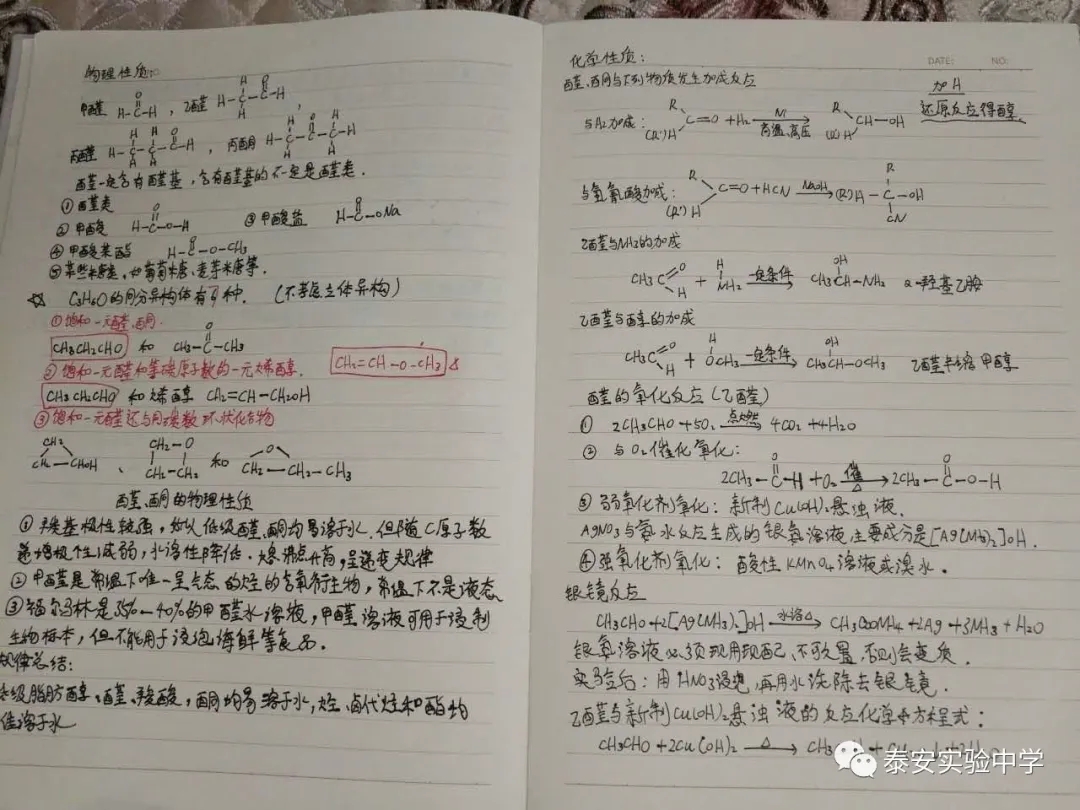 物理性质:
甲醛 H-C-H , 乙醛 H-C-C-H ,
丙醛 H-C-C-C-H , 丙酮 H-C-C-C-H
醛一定含有醛基,含有醛基的不一定是醛类.
①醛类
②甲酸 H-C-O-H ③甲酸盐 H-C-ONa
④甲酸某酯 H-C-O-CH3
⑤某些糖类,如葡萄糖、麦芽糖等.
☆ C3H6O的同分异构体有 种. (不考虑立体异构)
①饱和一元醛、酮.
CH3CH2CHO 和 CH3-C-CH3
②饱和一元醛和等碳原子数的一元烯醇. CH2=CH-O-CH3
CH3CH2CHO 和烯丙醇 CH2=CH-CH2OH
③饱和一元醛还与同碳数环状化合物
CH2 CH2 CHOH 、 CH2-O CH2-CH2 和 O CH2-CH2-CH3
醛、酮的物理性质
①羰基极性较强,所以低级醛、酮均易溶于水.但随C原子数
递增极性减弱,水溶性降低.熔沸点升高,呈递变规律
②甲醛是常温下唯一呈气态的烃的含氧衍生物,常温下不是液态
③福尔马林是35%-40%的甲醛水溶液,甲醛溶液可用于浸制
生物标本,但不能用于浸泡海鲜等食品.
规律总结:
低级脂肪醇、醛、羧酸,酮均易溶于水,烃、卤代烃和酯均
难溶于水
DATE: NO:
化学性质:
醛、酮与下列物质发生加成反应 加H
与H2加成: R (R')H C=O +H2 Ni 高温、高压 R (R')H CH-OH 还原反应得醇.
与氢氰酸加成: R (R')H C=O +HCN NaOH (R')H-C-OH R CN
乙醛与NH3的加成
CH3C O H + H NH2 一定条件 CH3CH-NH2 OH α-羟基乙胺
乙醛与醇的加成
CH3C O H + H OCH3 一定条件 CH3CH-OCH3 OH 乙醛半缩甲醇
醛的氧化反应(乙醛)
① 2CH3CHO+5O2 点燃 4CO2+4H2O
② 与O2催化氧化:
2CH3-C-H+O2 催 △ 2CH3-C-O-H
③弱氧化剂氧化: 新制Cu(OH)2悬浊液.
AgNO3与氨水反应生成的银氨溶液,主要成分是[Ag(NH3)2]OH.
④强氧化剂氧化: 酸性KMnO4溶液或溴水.
银镜反应
CH3CHO+2[Ag(NH3)2]OH 水浴△ CH3COONH4+2Ag+3NH3+H2O
银氨溶液必须现用现配,不可久置,否则会变质.
实验后:用HNO3浸泡,再用水洗除去银镜.
乙醛与新制Cu(OH)2悬浊液的反应化学方程式:
CH3CHO+2Cu(OH)2 △
泰安实验中学